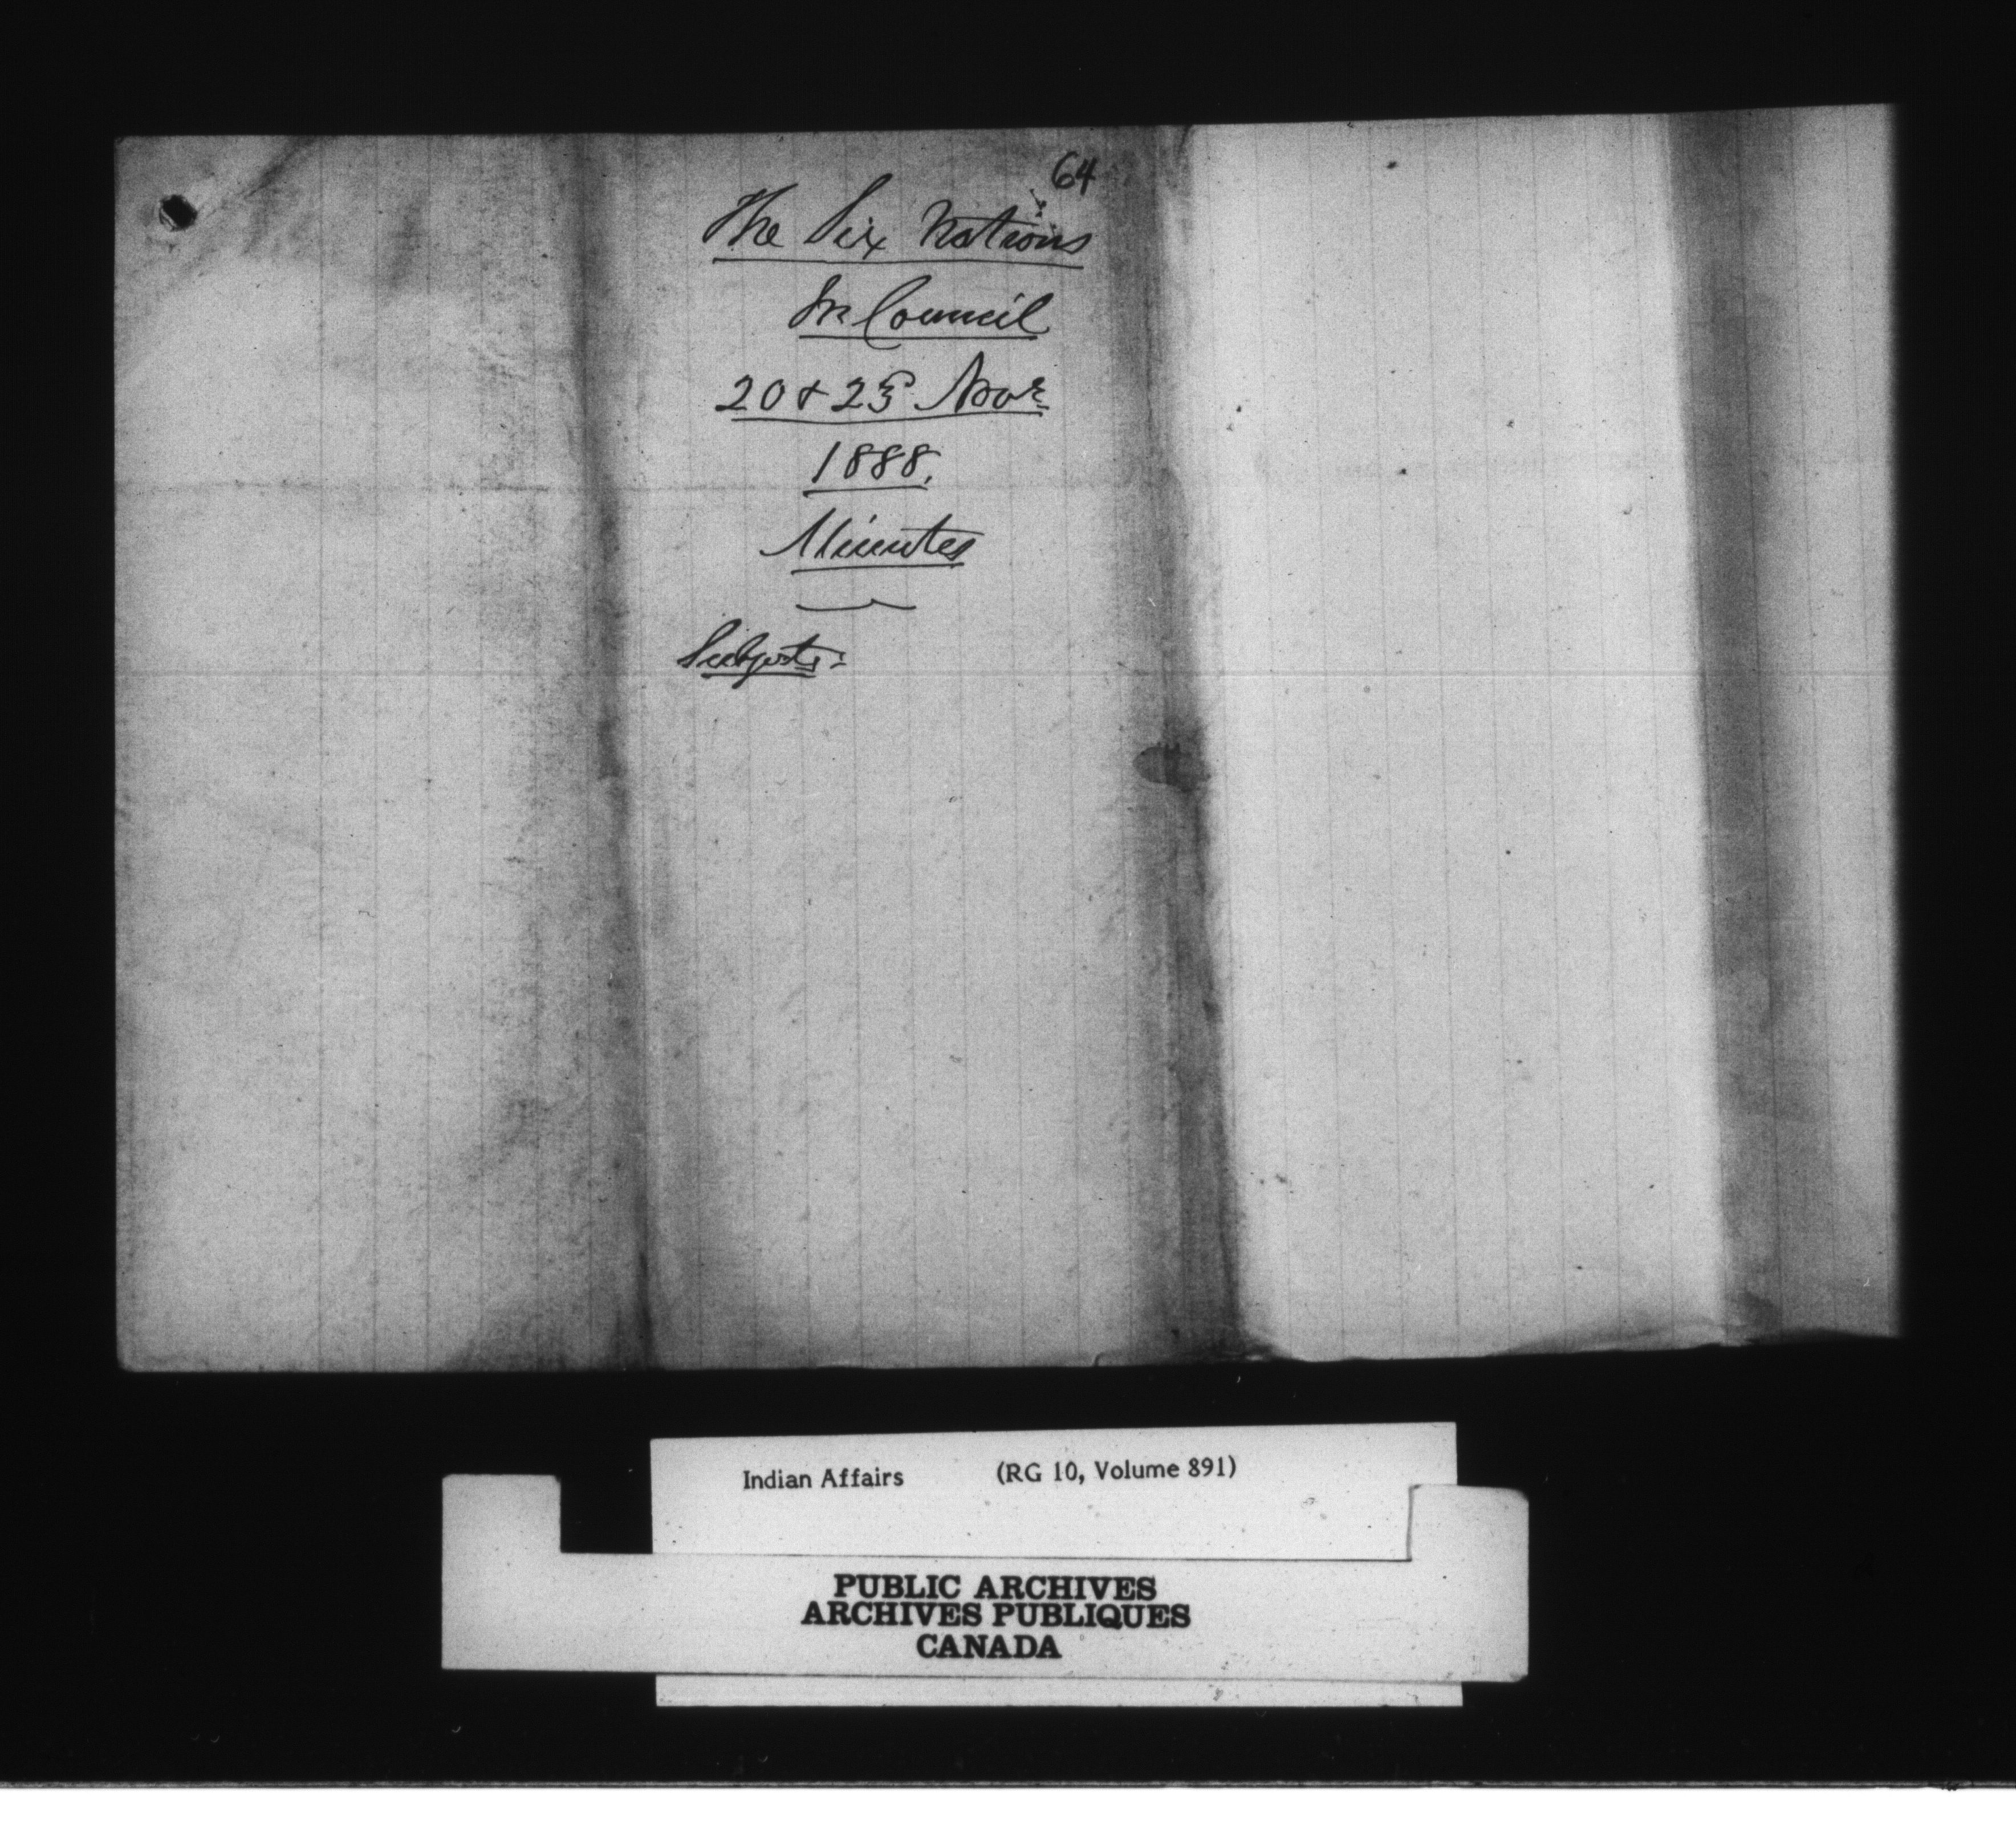 64
The Six Nations
In Council
20 & 23 Novr
1888.
Minutes
Subjects:
Indian Affairs (RG 10, Volume 891)
PUBLIC ARCHIVES
ARCHIVES PUBLIQUES
CANADA